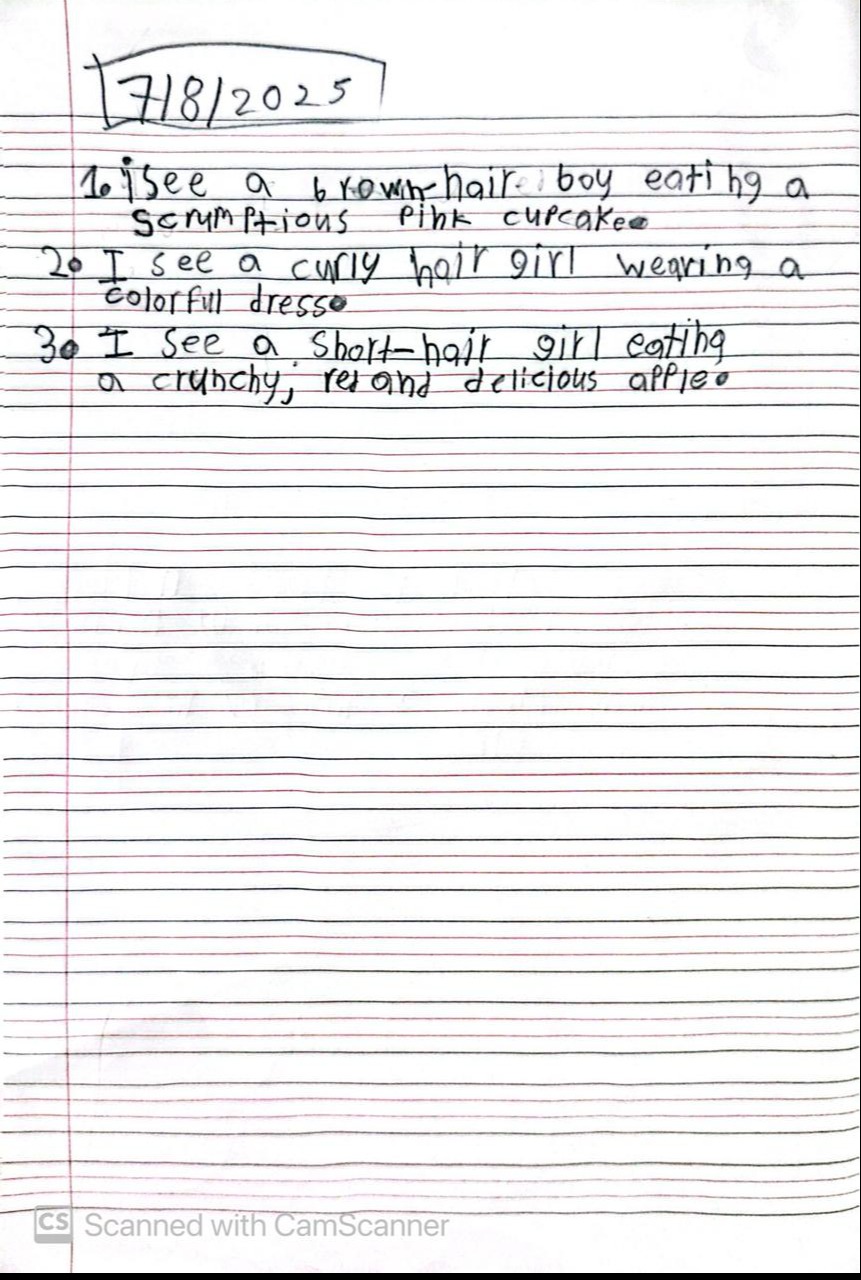 7/8/2025
1. i see a brown-hair boy eating a
scrumptious pink cupcake.
2. I see a curly hair girl wearing a
colorful dress.
3. I see a short-hair girl eating
a crunchy, red and delicious apple.
CS Scanned with CamScanner